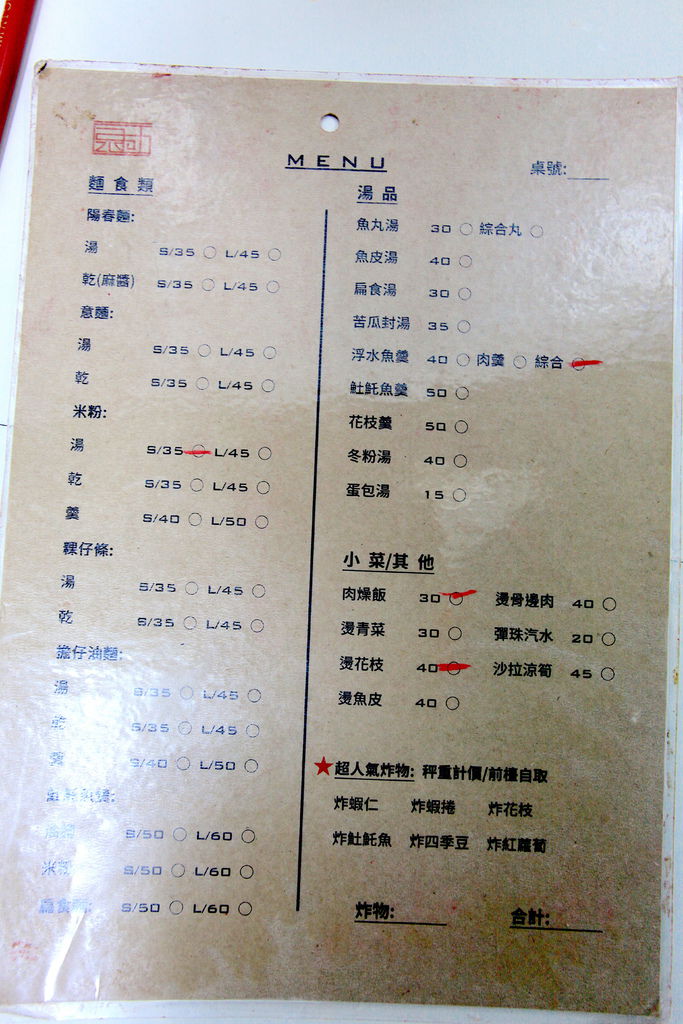 MENU
桌號:
麵食類
陽春麵:
湯 S/35 L/45
乾(麻醬) S/35 L/45
意麵:
湯 S/35 L/45
乾 S/35 L/45
米粉:
湯 S/35 L/45
乾 S/35 L/45
羹 S/40 L/50
粿仔條:
湯 S/35 L/45
乾 S/35 L/45
擔仔油麵:
湯 S/35 L/45
乾 S/35 L/45
羹 S/40 L/50
S/50 L/60
米粉 S/50 L/60
扁食麵: S/50 L/60
湯品
魚丸湯 30 綜合丸
魚皮湯 40
扁食湯 30
苦瓜封湯 35
浮水魚羹 40 肉羹 綜合
魠魠魚羹 50
花枝羹 50
冬粉湯 40
蛋包湯 15
小菜/其他
肉燥飯 30 燙骨邊肉 40
燙青菜 30 彈珠汽水 20
燙花枝 40 沙拉涼筍 45
燙魚皮 40
★超人氣炸物: 秤重計價/前檯自取
炸蝦仁 炸蝦捲 炸花枝
炸𩵚魠魚 炸四季豆 炸紅蘿蔔
炸物: 合計: